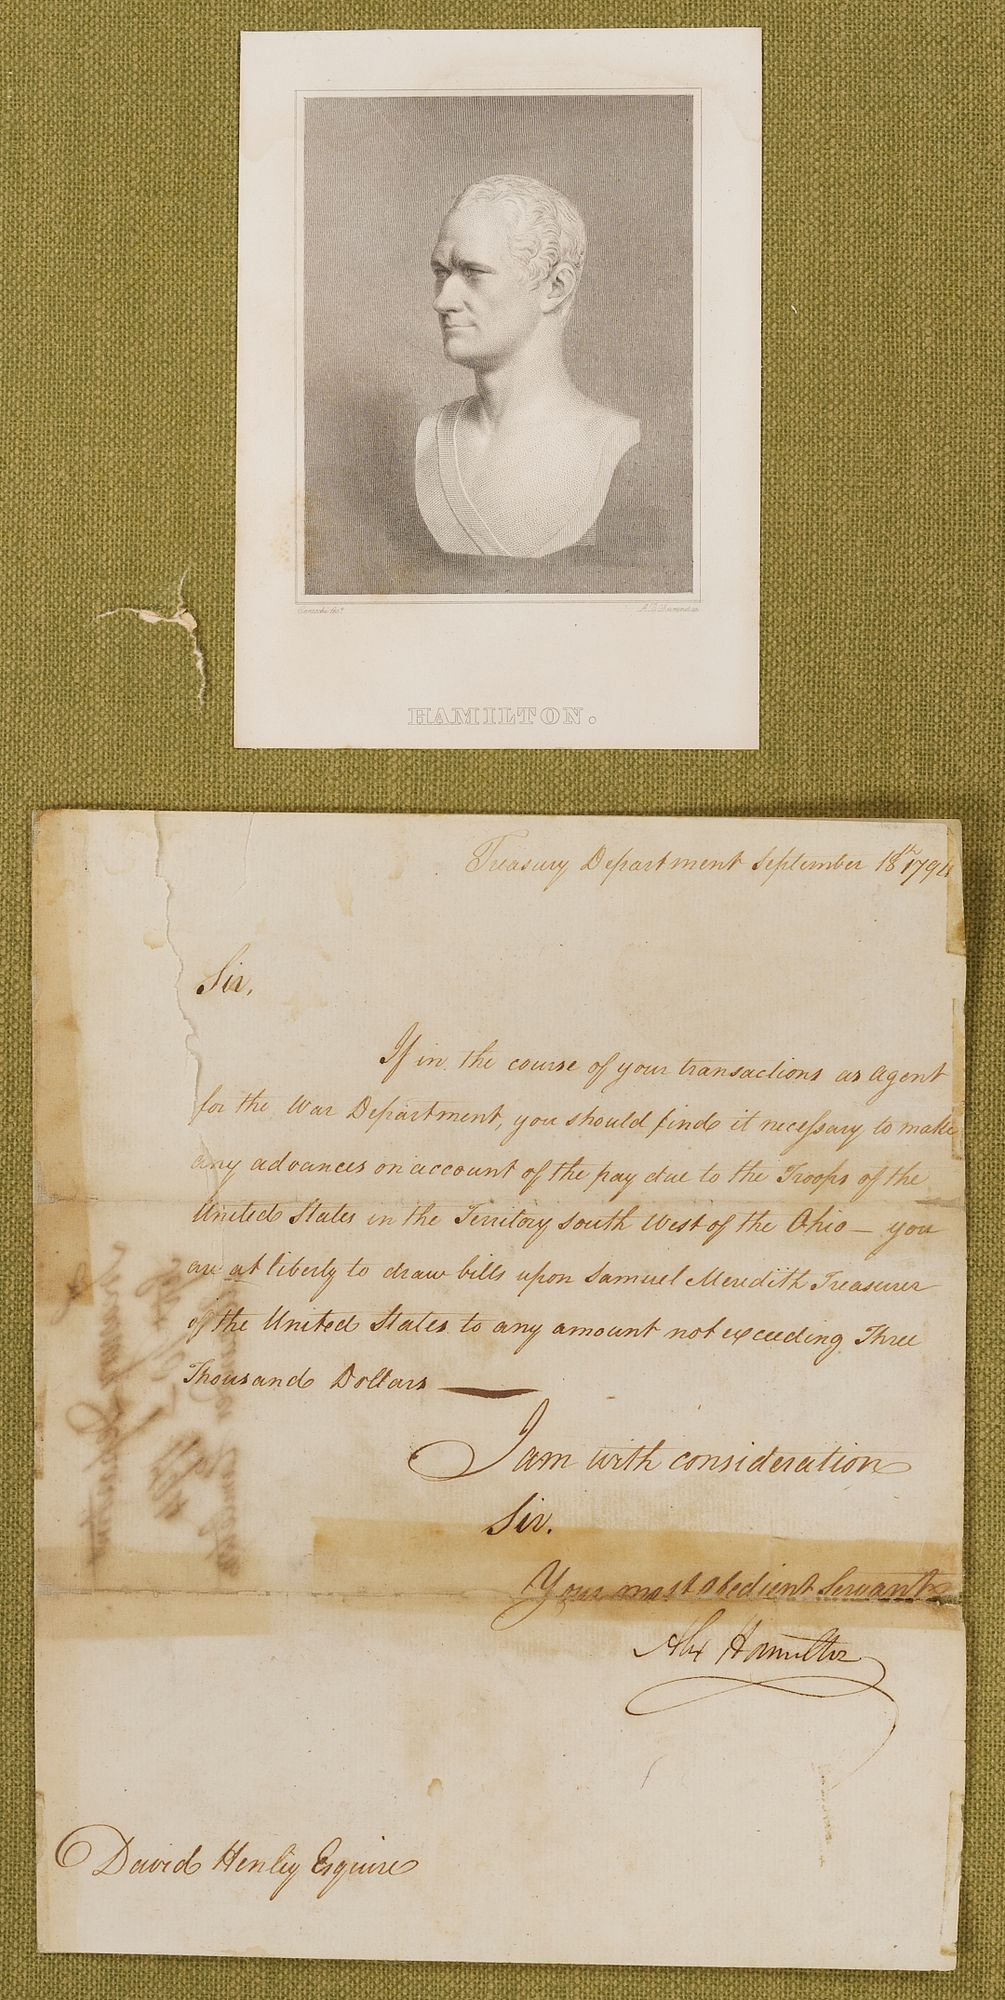 HAMILTON.
Treasury Department September 18th 1794
Sir,
If in the course of your transactions as Agent
for the War Department, you should find it necessary to make
any advances on account of the pay due to the Troops of the
United States in the Territory South West of the Ohio — you
are at liberty to draw bills upon Samuel Meredith Treasurer
of the United States to any amount not exceeding Three
Thousand Dollars —
I am with consideration
Sir.
Your most obedient Servant
Alex Hamilton
David Henley Esquire